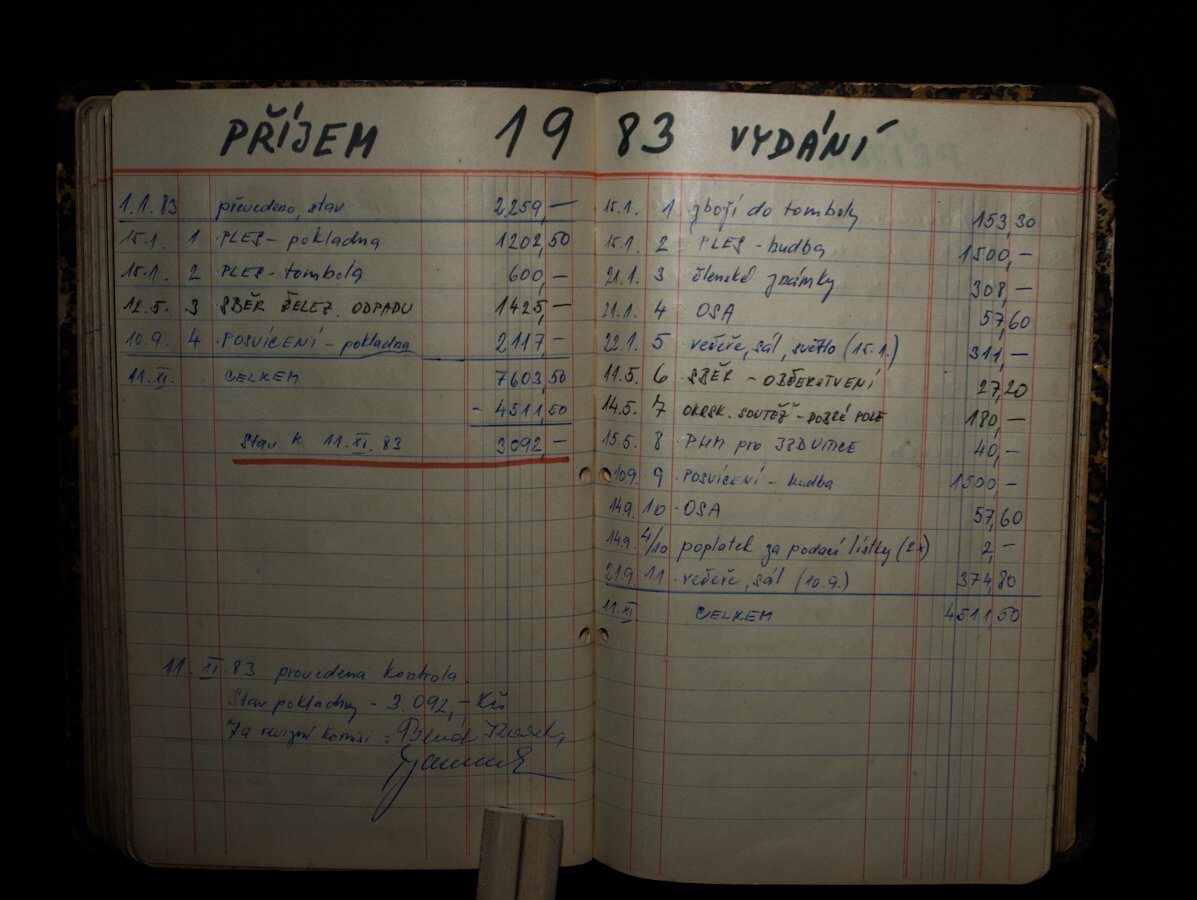 PŘÍJEM 19
1.1.83 převedeno, stav 2259,—
15.1. 1 PLES - pokladna 1202,50
15.1. 2 PLES - tombola 600,—
12.5. 3 SBĚR ŽELEZ. ODPADU 1425,—
10.9. 4 POSVÍCENÍ - pokladna 2117,—
11.XI. CELKEM 7603,50
- 4511,50
Stav k 11.XI.83 3092,—
11.XI.83 provedena kontrola.
Stav pokladny - 3.092,- Kčs
Za revizní komisi :
83 VYDÁNÍ
15.1. 1 zboží do tomboly 153,30
15.1. 2 PLES - hudba 1500,—
21.1. 3 členské známky 308,—
21.1. 4 OSA 57,60
22.1. 5 večeře, sál, světlo (15.1.) 311,—
11.5. 6 SBĚR - OBČERSTVENÍ 27,20
14.5. 7 OKRSK. SOUTĚŽ - DOBRÉ POLE 180,—
15.5. 8 PHM pro 40,—
10.9. 9 POSVÍCENÍ - hudba 1500 —
14.9. 10 OSA 57,60
14.9. 4/10 poplatek za podací lístky (2x) 2,—
21.9. 11 večeře, sál (10.9.) 374,80
11.XI CELKEM 4511,50